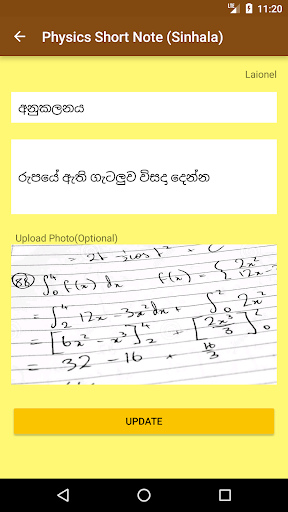 11:20
Physics Short Note (Sinhala)
Laionel
අනුකලනය
රුපයේ ඇති ගැටලුව විසදා දෙන්න
Upload Photo(Optional)
88 ∫₀⁴ f(x) dx f(x) = { 2x²
12x -
= ∫₂⁴ 12x - 3x² dx + ∫₀² 2x²
= [6x² - x³]₂⁴ + [2x³/3]₀²
= 32 - 16 + 16/3
UPDATE